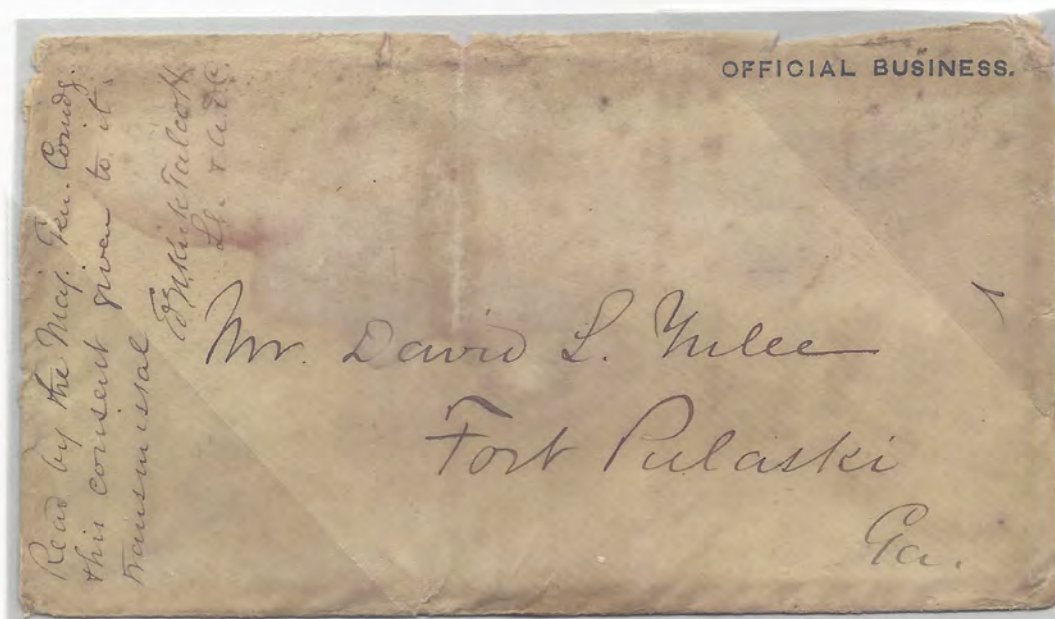 OFFICIAL BUSINESS.
Read by the Maj. Gen. Comdg.
this consent given to it
transmissal
Talcott
Lt. & A.D.C.
Mr. David L. Yulee
Fort Pulaski
Ga.